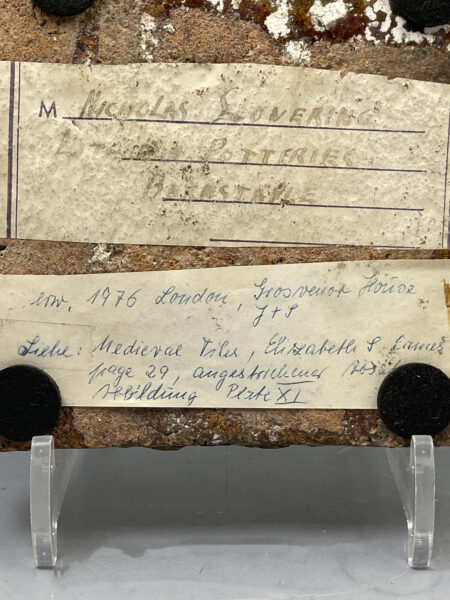 M Nicholas Lovering
Litchdon Potteries
Barnstaple
erw. 1976 London, Grosvenor House
J+S
Siehe: Medieval Tiles, Elizabeth S. Eames
page 29, angestrichener
Abbildung Plate XI